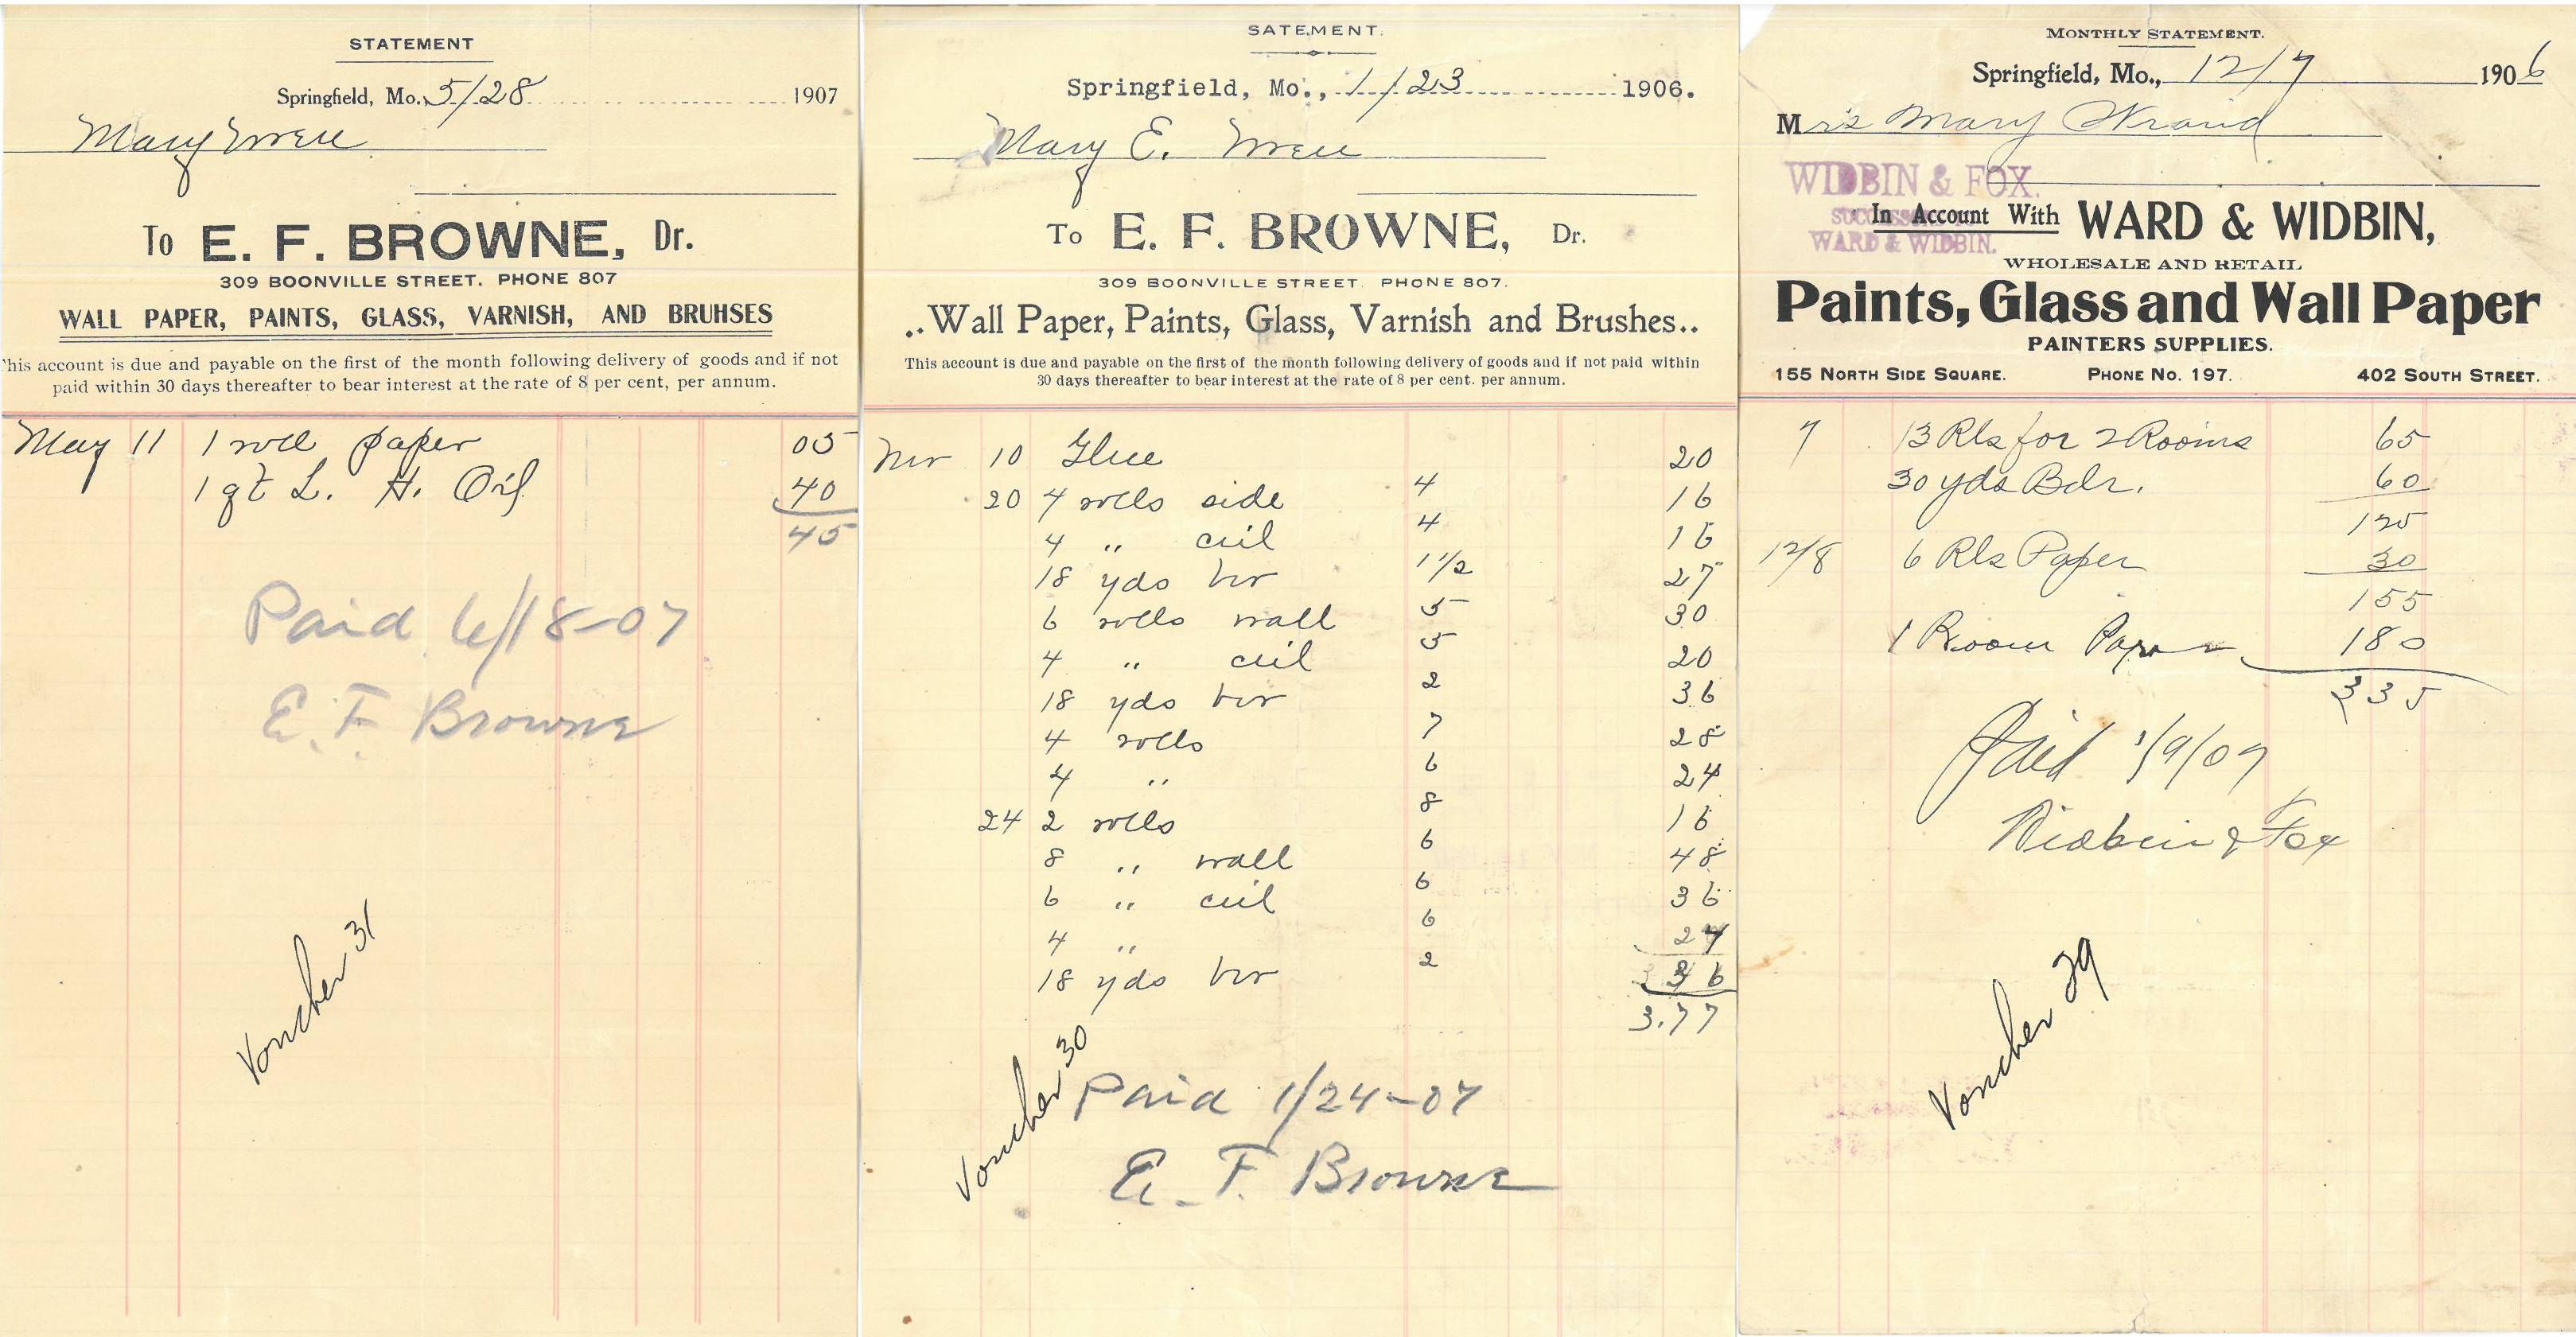 STATEMENT
Springfield, Mo. 5/28 1907
Mary
To E. F. BROWNE, Dr.
309 BOONVILLE STREET. PHONE 807
WALL PAPER, PAINTS, GLASS, VARNISH, AND BRUHSES
his account is due and payable on the first of the month following delivery of goods and if not
paid within 30 days thereafter to bear interest at the rate of 8 per cent, per annum.
May 11 1 roll paper 05
1 qt L. H. Oil 40
45
Paid 6/18-07
E. F. Browne
Voucher 31
SATEMENT.
Springfield, Mo., 1/23 1906.
Mary E.
To E. F. BROWNE, Dr.
309 BOONVILLE STREET. PHONE 807.
..Wall Paper, Paints, Glass, Varnish and Brushes..
This account is due and payable on the first of the month following delivery of goods and if not paid within
30 days thereafter to bear interest at the rate of 8 per cent. per annum.
10 Glue 20
20 4 rolls side 4 16
4 " ceil 4 16
18 yds bor 1 1/2 27
6 rolls wall 5 30
4 " ceil 5 20
18 yds bor 2 36
4 rolls 7 28
4 " 6 24
24 2 rolls 8 16
8 " wall 6 48
6 " ceil 6 36
4 " 6 24
18 yds bor 2 36
3.77
Voucher 30
Paid 1/24-07
E. F. Browne
MONTHLY STATEMENT.
Springfield, Mo., 12/7 1906
Mrs Mary
WIDBIN & FOX.
SUCCESSORS TO
WARD & WIDBIN.
In Account With WARD & WIDBIN,
WHOLESALE AND RETAIL
Paints, Glass and Wall Paper
PAINTERS SUPPLIES.
155 NORTH SIDE SQUARE. PHONE NO. 197. 402 SOUTH STREET.
7 13 Rls for 2 Rooms 65
30 yds Bdr. 60
125
12/8 6 Rls Paper 30
155
1 Room Paper 180
335
Paid 1/9/07
Widbin & Fox
Voucher 29